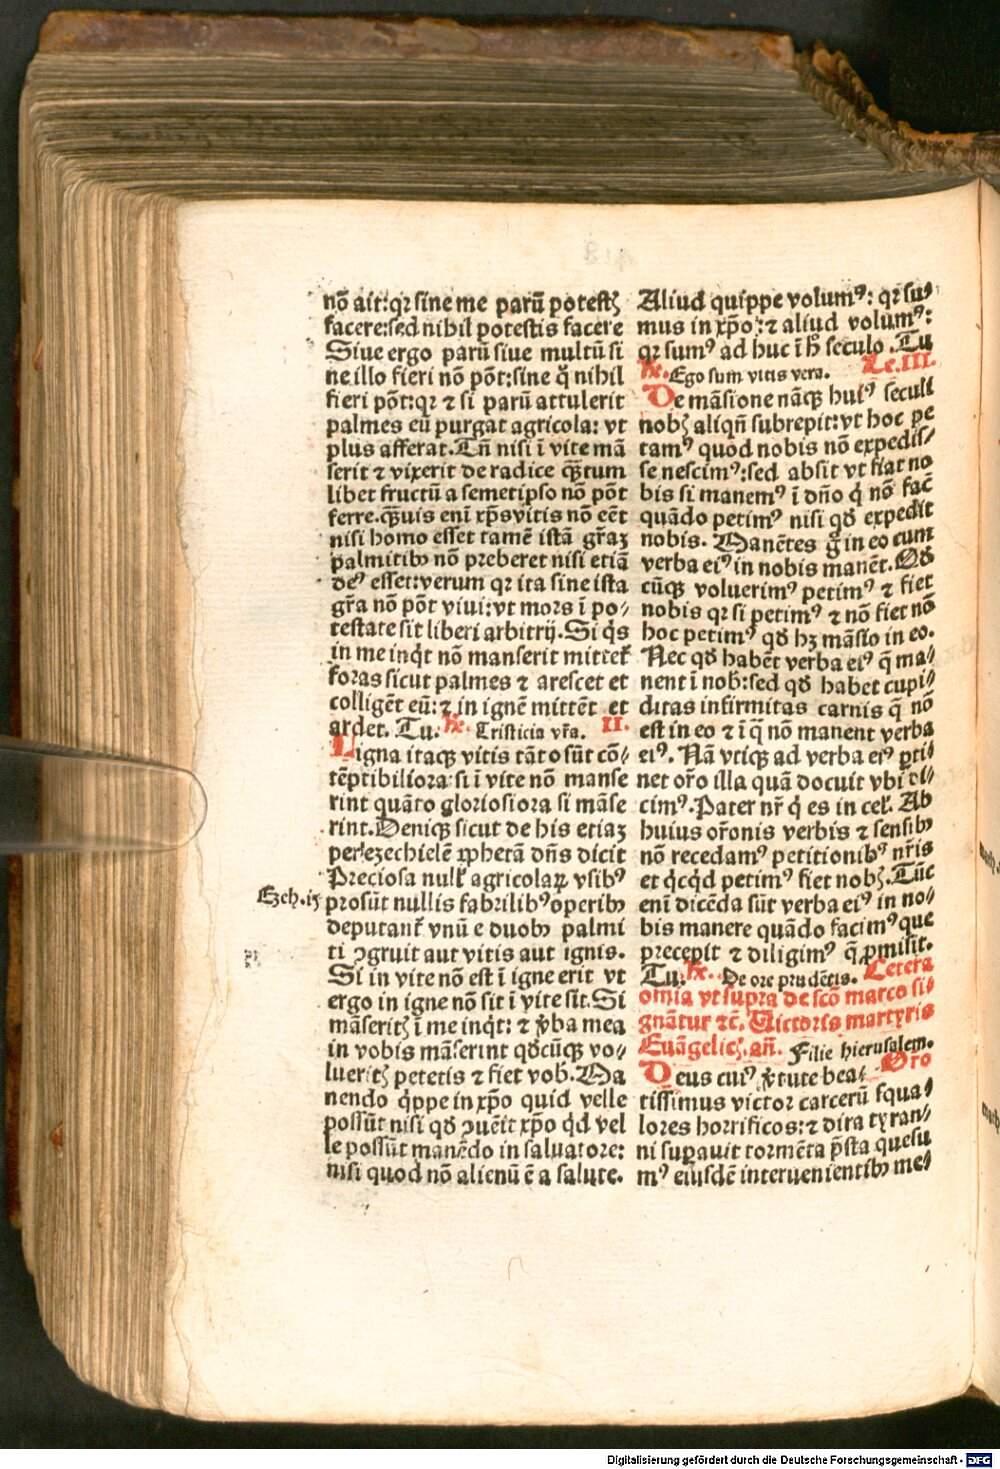 nõ ait: qꝛ sine me parũ potestꝭ
facere: sed nihil potestis facere
Siue ergo parũ siue multũ si
ne illo fieri nõ põt: sine q̃ nihil
fieri põt: qꝛ ⁊ si parũ attulerit
palmes eũ purgat agricola: vt
plus afferat. Tñ nisi ĩ vite mã
serit ⁊ vixerit de radice qz̃tum
libet fructũ a semetipso nõ põt
ferre. qz̃uis eni xp̃s vitis nõ eẽt
nisi homo esset tamẽ istã gr̃aꝫ
palmitibꝰ nõ preberet nisi etiã
deꝰ esset: verum qꝛ ita sine ista
gr̃a nõ põt viui: vt mors ĩ po⸗
testate sit liberi arbitrij. Si q̇s
in me inq̇t nõ manserit mittet᷒
foras sicut palmes ⁊ arescet et
colligẽt eũ: ⁊ in ignẽ mittẽt et
ardet. Tu. ℟. Tristicia vr̃a. II.
Ligna itaqꝫ vitis tãto sũt cõ⸗
tẽptibiliora: si ĩ vite nõ manse
rint quãto gloriosiora si mãse
rint. Deniqꝫ sicut de his etiaꝫ
per ezechielẽ ꝓphetã dñs dicit
Preciosa null᷒ agricolaꝝ vsibꝰ
Ezch. i5
prosũt nullis fabrilibꝰ operibꝰ
deputant᷒ vnũ e duobꝰ palmi
ti ꝯgruit aut vitis aut ignis.
Si in vite nõ est ĩ igne erit vt
ergo in igne nõ sit ĩ vite sit. Si
mãseritꝭ ĩ me inq̇t: ⁊ v̾ba mea
in vobis mãserint qd̃cũqꝫ vo⸗
lueritꝭ petetis ⁊ fiet vob. Ma
nendo q̇ppe in xp̃o quid velle
possũt nisi qd̃ ꝯuẽit xp̃o qd̃ vel
le possũt manẽdo in saluatore:
nisi quod nõ alienũ ẽ a salute.
Aliud quippe volumꝰ: qꝛ su⸗
mus in xp̃o: ⁊ aliud volumꝰ:
qꝛ sumꝰ ad huc ĩ h̾ seculo. Tu
℟. Ego sum vitis vera. Le. III.
De mãsione nãqꝫ huiꝰ seculi
nobꝭ aliqñ subrepit: vt hoc pe
tamꝰ quod nobis nõ expedis⸗
se nescimꝰ: sed absit vt fiat no
bis si manemꝰ ĩ dño q̇ nõ fac̃
quãdo petimꝰ nisi qd̃ expedit
nobis. Manẽtes g̾ in eo cum
verba eiꝰ in nobis manẽt. Qd̃
cũqꝫ voluerimꝰ petimꝰ ⁊ fiet
nobis qꝛ si petimꝰ ⁊ nõ fiet nõ
hoc petimꝰ qd̃ hꝫ mãsio in eo.
Nec qd̃ habẽt verba eiꝰ q̃ ma⸗
nent ĩ nob: sed qd̃ habet cupi⸗
ditas infirmitas carnis q̃ nõ
est in eo ⁊ ĩ q̃ nõ manent verba
eiꝰ. Nã vtiqꝫ ad verba eiꝰ ꝑti⸗
net or̃o illa quã docuit vbi di⸗
cimꝰ. Pater nr̃ q̇ es in cel᷒. Ab
huius or̃onis verbis ⁊ sensibꝰ
nõ recedamꝰ petitionibꝰ nr̃is
et q̇cq̇d petimꝰ fiet nobꝭ. Tũc
eni dicẽda sũt verba eiꝰ in no⸗
bis manere quãdo facimꝰ que
precepit ⁊ diligimꝰ q̃ ꝓmisit.
Tu. ℟. De ore prudẽtis. Cetera
omia vt supra de scõ marco si⸗
gnãtur ⁊c̃. Victoris martyris
Euãgelicꝭ. añ. Filie hierusalem.
Oro
Deus cuiꝰ v̾tute bea⸗
tissimus victor carcerũ squa⸗
lores horrificos: ⁊ dira tyran⸗
ni suꝑauit tormẽta p̃sta quesu
mꝰ eiusdẽ interuenientibꝰ me⸗
Digitalisierung gefördert durch die Deutsche Forschungsgemeinschaft - DFG